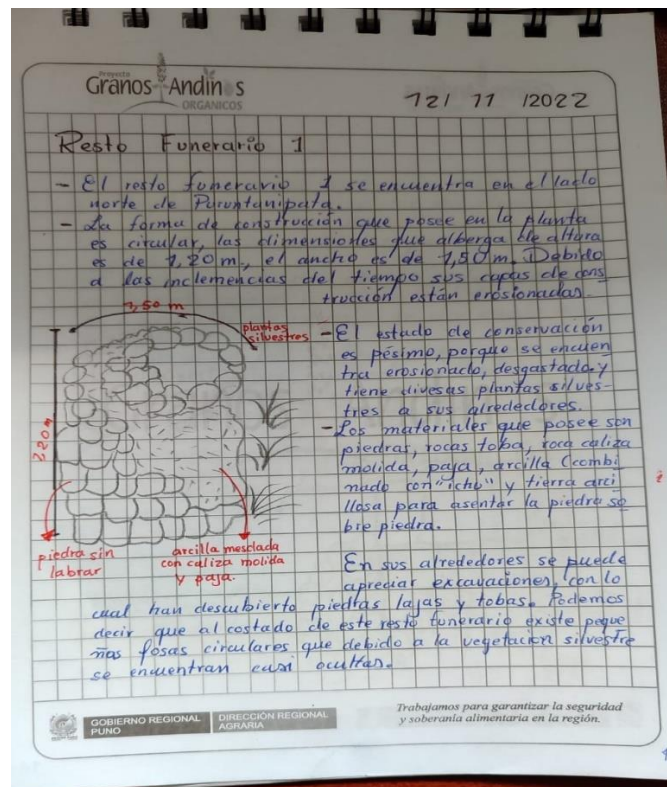 Proyecto
Granos Andin s
ORGANICOS
12/ 11 /2022
Resto Funerario 1
- El resto funerario 1 se encuentra en el lado
norte de Puruntanipata.
- La forma de construcción que posee en la planta
es circular, las dimensiones que alberga de altura
es de 1,20 m., el ancho es de 1,50 m. Debido
a las inclemencias del tiempo sus capas de cons
trucción están erosionadas.
1,50 m
plantas
silvestres
- El estado de conservación
es pésimo, porque se encuen
tra erosionado, desgastado y
tiene divesas plantas silves-
tres a sus alrededores.
- Los materiales que posee son
piedras, rocas toba, roca caliza
molida, paja, arcilla (combi
nado con "ichu" y tierra arci
llosa para asentar la piedra so
bre piedra.
piedra sin
labrar
arcilla mesclada
con caliza molida
y paja.
En sus alrededores se puede
apreciar excavaciones, con lo
cual han descubierto piedras lajas y tobas. Podemos
decir que al costado de este resto funerario existe peque
ñas fosas circulares que debido a la vegetación silvestre
se encuentran casi ocultas.
GOBIERNO REGIONAL
PUNO
DIRECCIÓN REGIONAL
AGRARIA
Trabajamos para garantizar la seguridad
y soberanía alimentaria en la región.